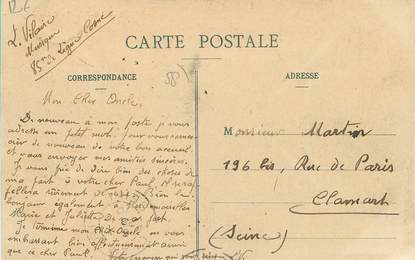 L. Vilaire
Musique
85e de Ligne Cosne
CARTE POSTALE
CORRESPONDANCE
ADRESSE
Mon Cher Oncle,
De nouveau à mon poste je vous
adresse un petit mot pour vous remer-
cier de nouveau de votre bon accueil
et vous envoyer mes amitiés sincères.
Je vous prie de dire bien des choses de
ma part à votre cher Paul,
bonjour également à
Marie et Juliette de ma part.
Je termine mon Cher Oncle en vous
embrassant bien affectueusement ainsi
que ce cher Paul. Votre neveu qui vous aime
Monsieur Martin
196 bis, Rue de Paris
Clamart
(Seine)